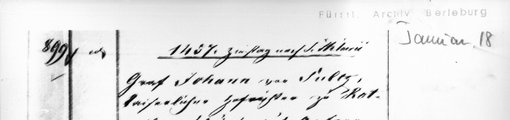 Fürstl. Archiv Berleburg
Januar 18
899
1437. Zinstag nach S. Hilarii
Graf Johann von Sultz,
kaiserlicher Hofrichter zu Rot-